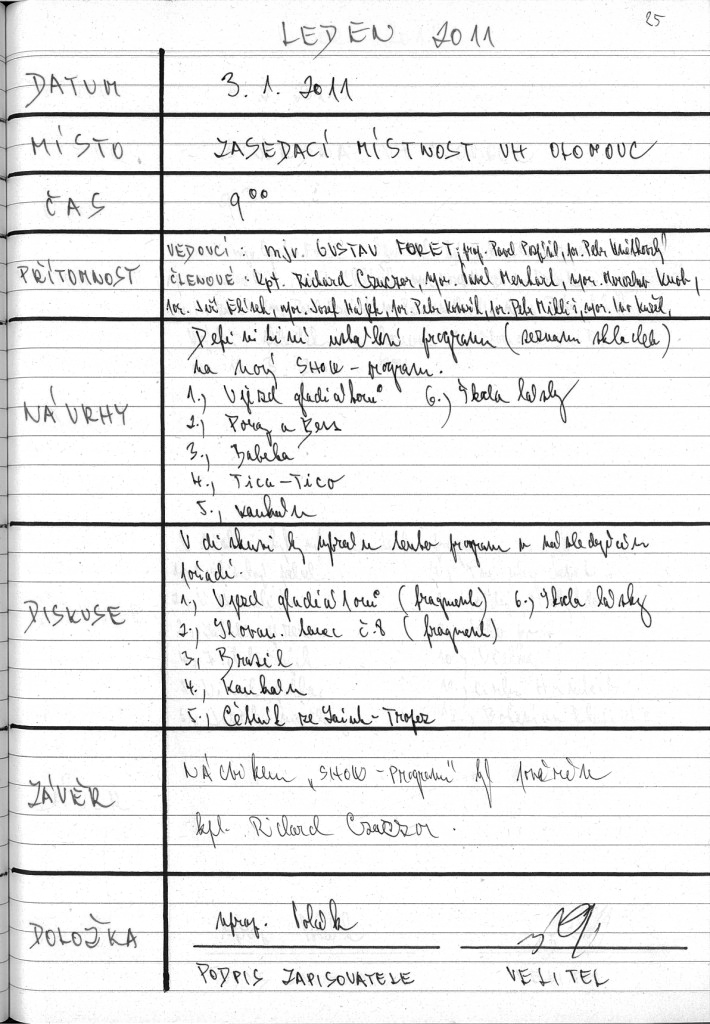 25
LEDEN 2011
DATUM 3. 1. 2011
MÍSTO ZASEDACÍ MÍSTNOST VH OLOMOUC
ČAS 9⁰⁰
PŘÍTOMNOST
VEDOUCÍ: mjr. GUSTAV FORET, prap. Pavel
ČLENOVÉ: kpt. Richard Czaczor, npor. Pavel Menhart, npor. Miroslav
Jiří npor. Josef Hájek, Petr Petr npor. Ivo
NÁVRHY
Definitivní ustálení programu (seznam skladeb)
na nový SHOW-program.
1., Vjezd gladiátorů 6., Škola lásky
2., Porgy a Bess
3., Babeta
4., Tico-Tico
5., Kankán
DISKUSE
V diskusi byl upraven tento program v následujícím
pořadí.
1., Vjezd gladiátorů (fragment) 6., Škola lásky
2., Slovan. tanec č.8 (fragment)
3, Brazil
4., Kankán
5., Četník ze Saint-Tropez
ZÁVĚR
Nácvikem „SHOW-programu" byl pověřen
kpt. Richard Czaczor.
DOLOŽKA
PODPIS ZAPISOVATELE VELITEL